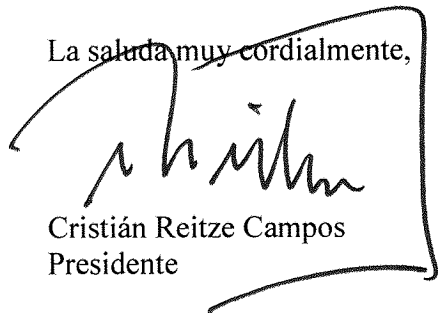 La saluda muy cordialmente,
Cristián Reitze Campos
Presidente